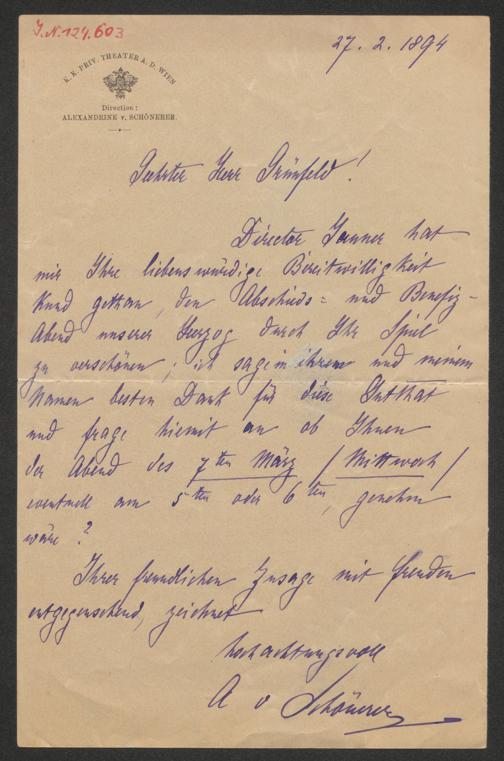 J.N. 124.603
27. 2. 1894
K. K. PRIV. THEATER A. D. WIEN
Direction:
ALEXANDRINE v. SCHÖNERER.
Geehrter Herr Grünfeld!
Director Jauner hat
mir Ihre liebenswürdige Bereitwilligkeit
kund gethan, den Abschieds= und Benefiz-
Abend unserer Herzog durch Ihr Spiel
zu verschönen; ich sage in ihrem und meinem
Namen besten Dank für diese Gutthat
und frage hiemit an ob Ihnen
der Abend des 7ten März /Mittwoch/
eventuell am 5ten oder 6ten, genehm
wäre?
Ihrer freundlichen Zusage mit Freuden
entgegensehend, zeichnet
hochachtungsvoll
A v Schönerer